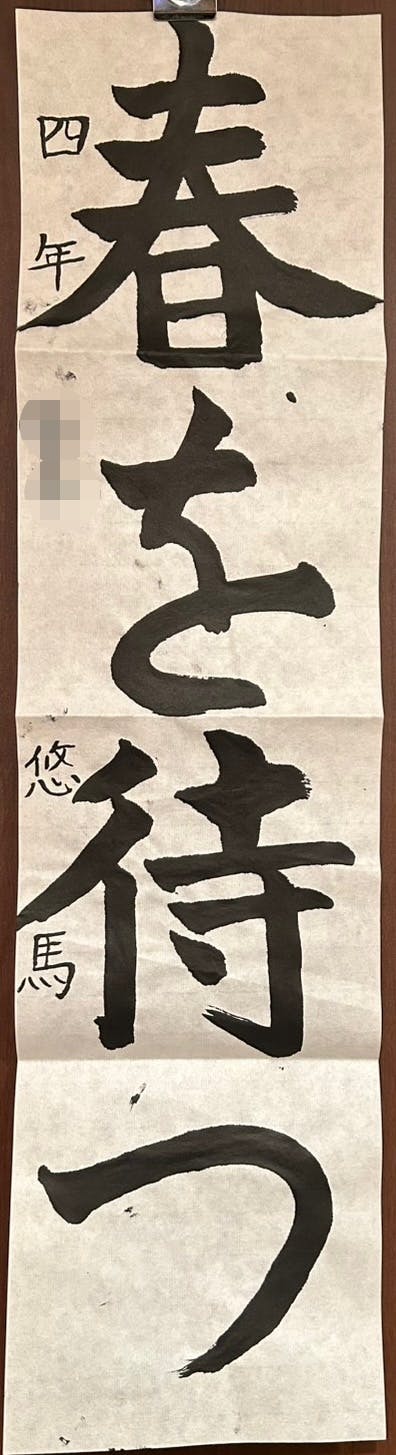 春を待つ
四年 悠馬